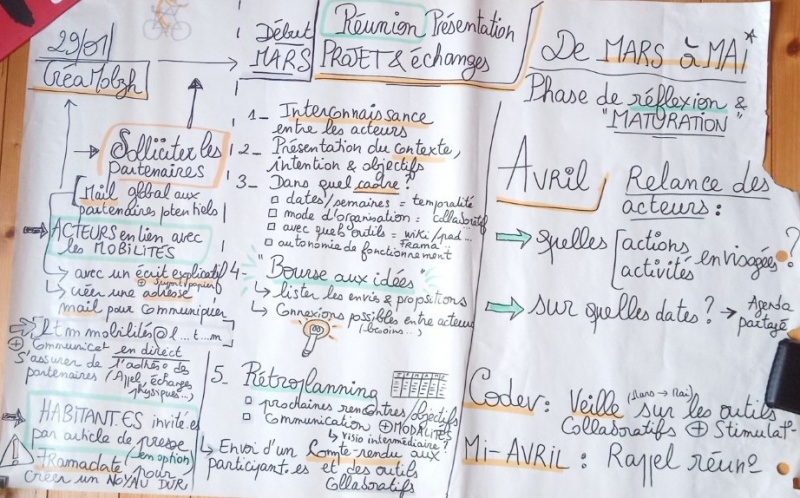 29/01
CréaMob7h
Solliciter les
Partenaires
Mail global aux
partenaires potentiels
ACTEURS en lien avec
les MOBILITÉS
avec un écrit explicatif
⊕ support papier
créer une adresse
mail pour communiquer
ltm mobilités@l...t...m
⊕ Communicat° en direct
S'assurer de l'adhés° des
partenaires (Appel, échanges
physiques...)
HABITANT.ES invité.es
par article de presse
(en option)
⚠ Framadate pour
créer un NOYAU DUR
Début
MARS
Réunion Présentation
PROJET & échanges
1_ Interconnaissance
entre les acteurs
2_ Présentation du contexte,
intention & objectifs
3_ Dans quel cadre ?
dates/semaines = temporalité
mode d'organisation = collaboratif
avec quel outils = wiki/pad...
Frama...
autonomie de fonctionnement
4_ "Bourse aux idées"
lister les envies & propositions
Connexions possibles entre acteurs
(besoins...)
5_ Rétroplanning
prochaines rencontres/objectifs
Communication ⊕ MODALITÉS
visio intermédiaire ?
Envoi d'un Compte-rendu aux
participant.es et des outils
Collaboratifs
De MARS à MAI*
Phase de réflexion &
"MATURATION"
AVRIL
Relance des
acteurs :
quelles [actions
activités envisagées ?
sur quelles dates ? → Agenda
partagé
Codev : Veille (Mars → Mai) sur les outils
Collaboratifs ⊕ Stimulat°
Mi-AVRIL : Rappel réun°